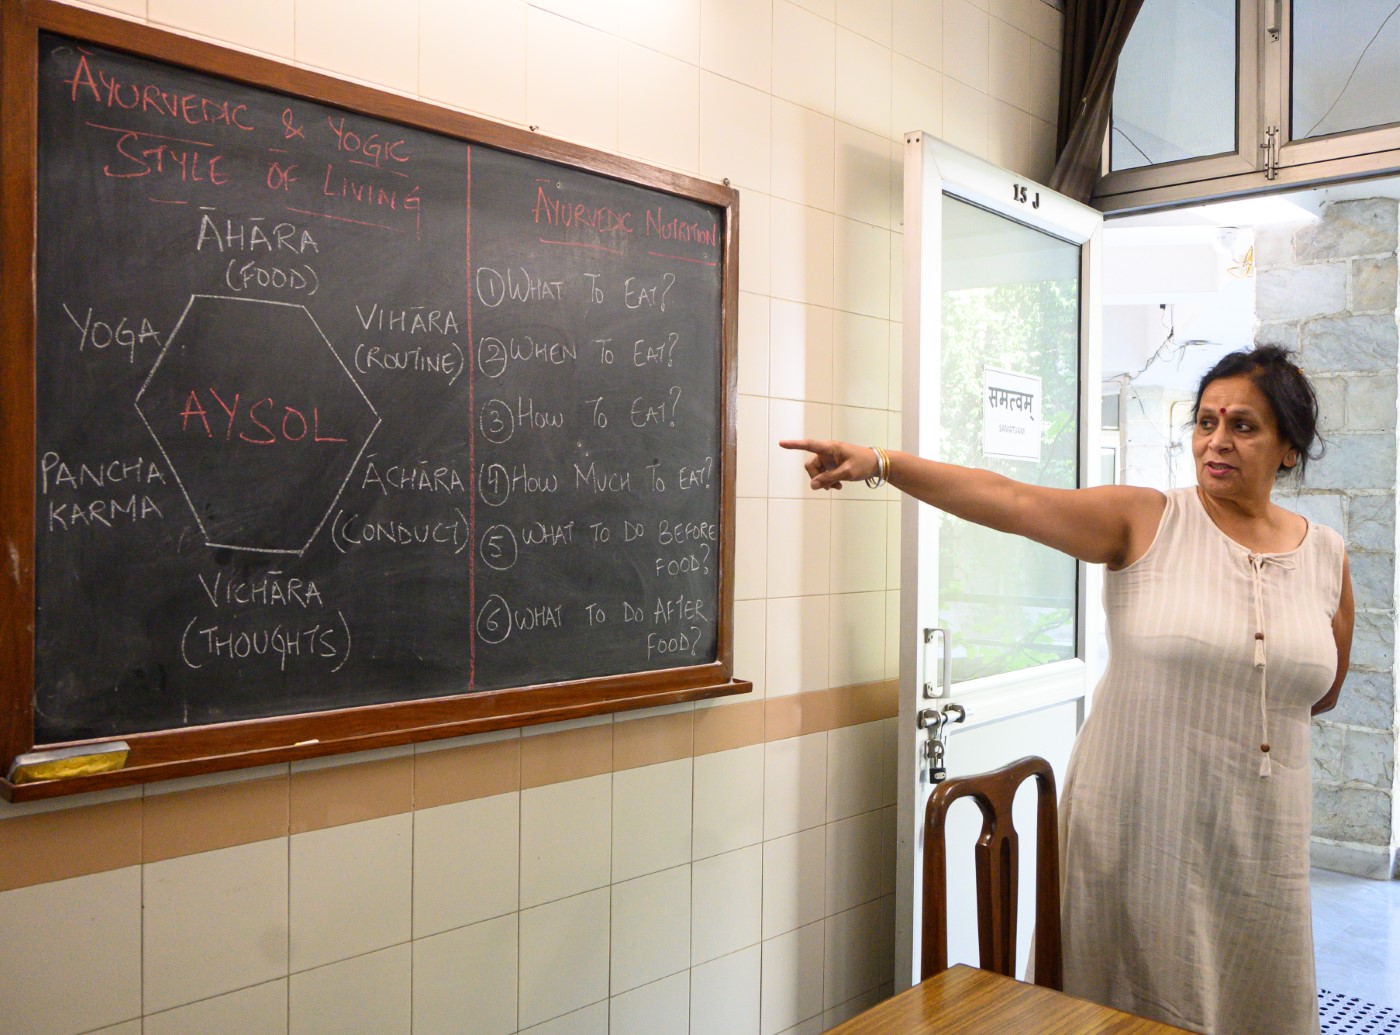 ĀYURVEDIC & YOGIC
STYLE OF LIVING
ĀHĀRA
(FOOD)
YOGA
VIHĀRA
(ROUTINE)
AYSOL
PANCHA
KARMA
ĀCHĀRA
(CONDUCT)
VICHĀRA
(THOUGHTS)
ĀYURVEDIC NUTRITION
① WHAT TO EAT?
② WHEN TO EAT?
③ HOW TO EAT?
④ HOW MUCH TO EAT?
⑤ WHAT TO DO BEFORE
FOOD?
⑥ WHAT TO DO AFTER
FOOD?
15 J
समत्वम्
SAMATVAM